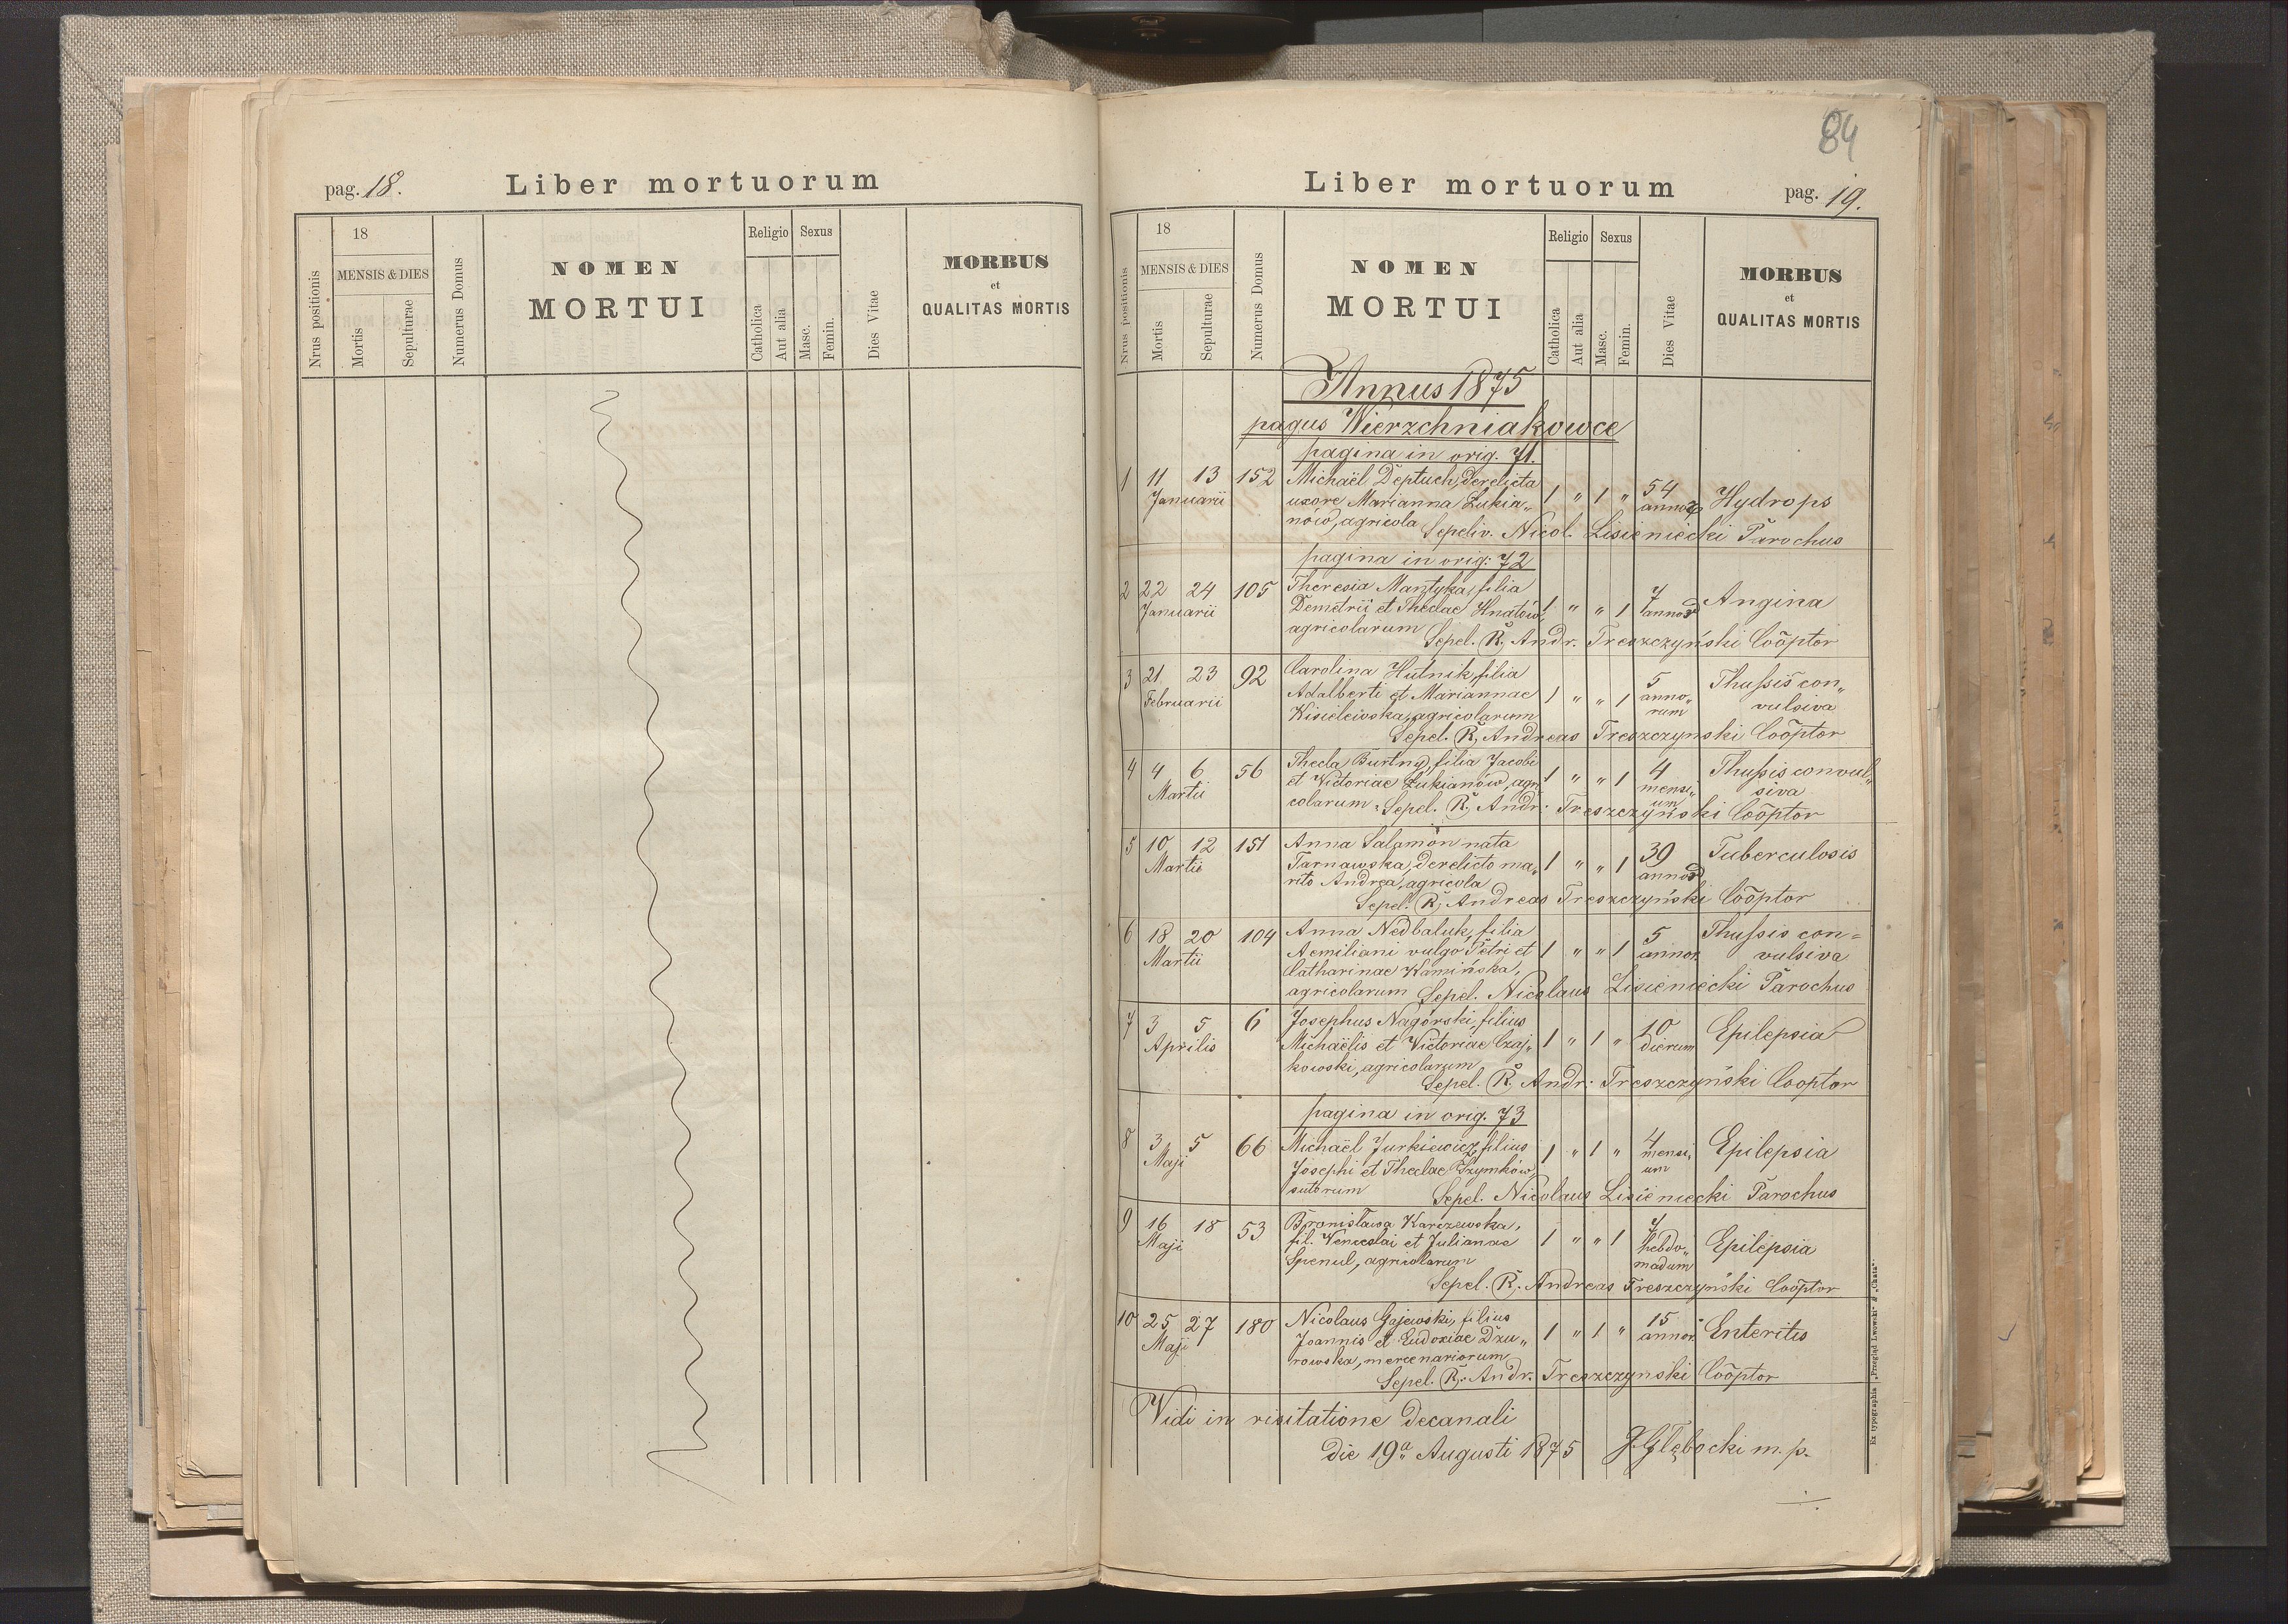 84
pag. 18.
Liber mortuorum
Nrus positionis
18
MENSIS & DIES
Mortis
Sepulturae
Numerus Domus
NOMEN
MORTUI
Religio
Catholica
Aut alia
Sexus
Masc.
Femin.
Dies Vitae
MORBUS
et
QUALITAS MORTIS
Liber mortuorum
pag. 19.
Nrus positionis
18
MENSIS & DIES
Mortis
Sepulturae
Numerus Domus
NOMEN
MORTUI
Religio
Catholica
Aut alia
Sexus
Masc.
Femin.
Dies Vitae
MORBUS
et
QUALITAS MORTIS
Annus 1875
pagus Wierzchniakowce
pagina in orig. 71.
1 11 13 152 Michaël Deptuch, derelicta 1 " 1 " 54 Hydrops
Januarii uxore Marianna Łukia„ annor
nów, agricola Sepeliv. Nicol. Lisieniecki Parochus
pagina in orig: 72
2 22 24 105 Theresia Mantyka, filia 1 " " 1 7 Angina
Januarii Demetrii et Theclae Hnatów, annor
agricolarum Sepel. R. Andr. Treszczyński Coöptor
3 21 23 92 Carolina Hutnik, filia 1 " " 1 5 Thussis con„
Februarii Adalberti et Mariannae anno„ vulsiva
Kisielewska, agricolarum rum
Sepel. R. Andreas Treszczynski Coöptor
4 4 6 56 Thecla Burtny, filia Jacobi 1 " " 1 4 Thussis convul„
Martii et Victoriae Łukianów, agri mensi„ siva
colarum Sepel. R. Andr: Treszczyński Coöptor um
5 10 12 151 Anna Salamon nata 1 " " 1 39 Tuberculosis
Martii Tarnawska, derelicto ma„ annor
rito Andrea, agricola
Sepel. R. Andreas Treszczyński Coöptor
6 18 20 104 Anna Nedbaluk, filia 1 " " 1 5 Thussis con=
Martii Aemiliani vulgo Petri et annor. vulsiva
Catharinae Kamińska,
agricolarum Sepel. Nicolaus Lisieniecki Parochus
7 3 5 6 Josephus Nagórski, filius 1 " 1 " 10 Epilepsia
Aprilis Michaëlis et Victoriae Czaj„ dierum
kowski, agricolarum
Sepel. R. Andr: Treszczyński Cooptor
pagina in orig. 73
8 3 5 66 Michaël Jurkiewicz, filius 1 " 1 " 4 Epilepsia
Maji Josephi et Theclae Szymków, mensi„
sutorum um
Sepel. Nicolaus Lisieniecki Parochus
9 16 18 53 Bronisława Karczewska, 1 " " 1 7 Epilepsia
Maji fil. Venceslai et Julianae hebdo„
Spenul, agricolarum madum
Sepel. R. Andreas Treszczyński Coöptor
10 25 27 180 Nicolaus Gajewski, filius 1 " 1 " 15 Enteritis
Maji Joannis et Eudoxiae Dzu„ annor.
rowska, mercenariorum
Sepel. R. Andr. Treszczynski Coöptor
Vidi in visitatione decanali
die 19a Augusti 1875 J. Głębocki m. p.
Ex typographia „Przegląd Lwowski" & „Chata"